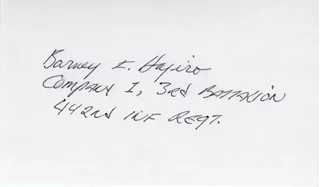 Barney F. Hajiro
Company I, 3rd Battalion
442nd INF REGT.